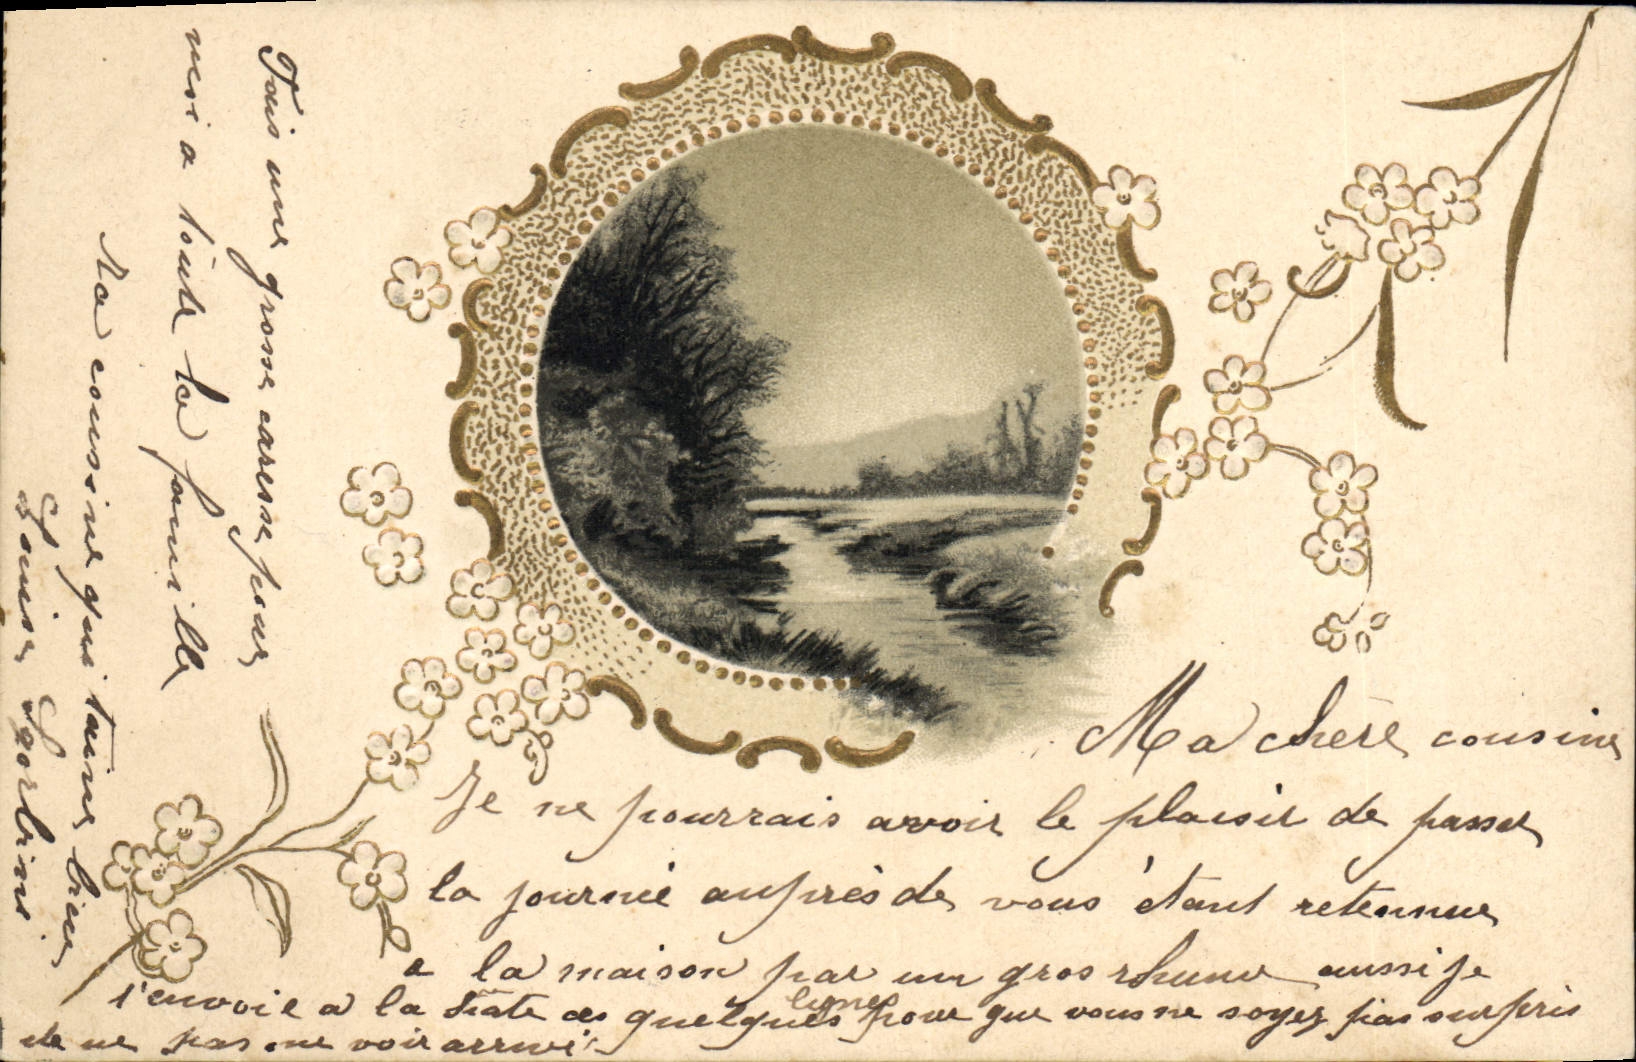 Ma chère cousine
Je ne pourrais avoir le plaisir de passer
la journée auprès de vous étant retennue
a la maison par un gros rhume aussi je
t'envoie a la hate ces quelques lignes pour que vous ne soyez pas surpris
de ne pas me voir arriver
Fais une grosse caresse pour
moi a toute la famille
Ta cousine qui t'aime bien
Louise